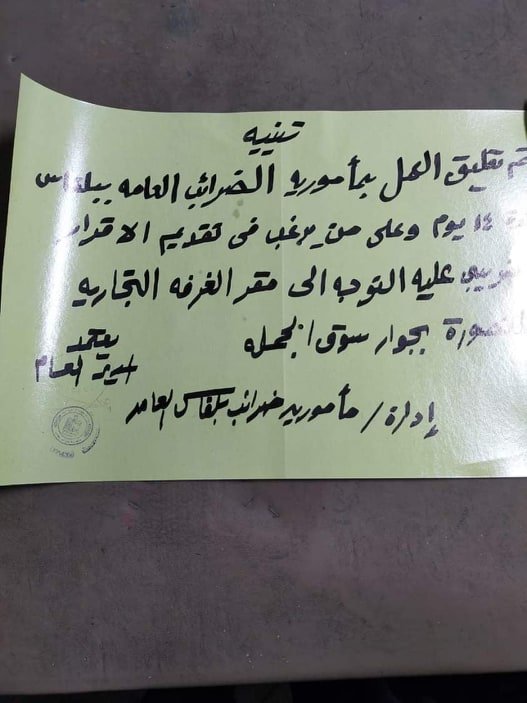 تنبيه
تم تعليق العمل بمأمورية الضرائب العامه ببلقاس
١٤ يوم وعلى من يرغب فى تقديم الاقرار
عليه التوجه الى مقر الغرفه التجاريه
بجوار سوق الجمله
يعتمد
المدير العام
إدارة / مأمورية ضرائب بلقاس العامه